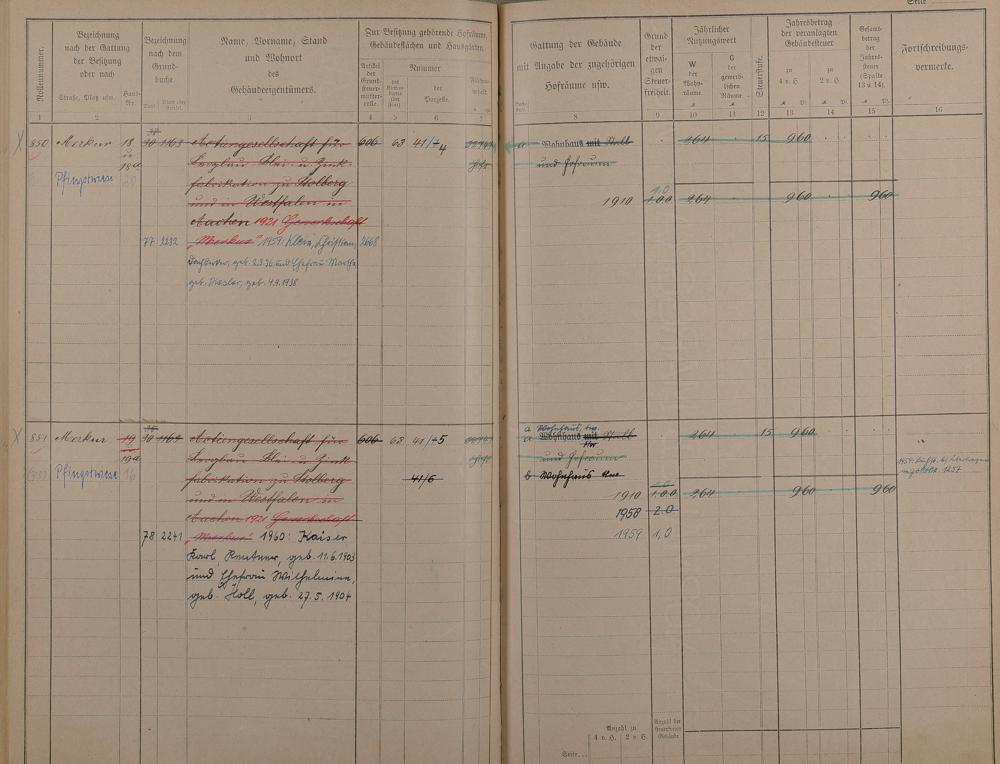 Seite
Rollennummer.
Bezeichnung
nach der Gattung
der Besitzung
oder nach
Straße, Platz usw.
Haus-
Nr.
Bezeichnung
nach dem
Grund-
buche.
Name, Vorname, Stand
und Wohnort
des
Gebäudeeigentümers.
Zur Besitzung gehörende Hofräume,
Gebäudeflächen und Hausgärten.
Artikel
der
Grund-
steuer-
mutter-
rolle.
Nummer
der
Parzelle.
1 2 3 4 5 6 7
850 Merkur 18 30 1163 Actiengesellschaft für 606 63 41/4
u Bergbau Blei- u. Zink-
19a fabrikation zu Stolberg
Pfingstwiese 20
und in Westfalen in
Aachen 1921 Gewerkschaft
77 2232 "Merkur" 1959: Klein, Christian, 2668
Dachdecker, geb. 8.3.36 und Ehefrau Martha
geb. 4.9.1938
851 Merkur 19 30 1163 Actiengesellschaft für 606 63 41/5
19a Bergbau Blei- u. Zink-
Pfingstwiese 16 fabrikation zu Stolberg 41/6
und in Westfalen in
Aachen 1921 Gewerkschaft
78 2241 "Merkur" 1960: Kaiser
Karl, Rentner, geb. 11.6.1903
und Ehefrau Wilhelmine,
geb. Holl, geb. 27.5.1904
Gattung der Gebäude
mit Angabe der zugehörigen
Hofräume usw.
Grund
der
etwai-
gen
Steuer-
freiheit.
Jährlicher
Nutzungswert
W
der
Wohn-
räume.
G
der
gewerb-
lichen
Räume.
Steuerstufe.
Jahresbetrag
der veranlagten
Gebäudesteuer
zu
4 v. H.
zu
2 v. H.
Gesamt-
betrag
der
Jahres-
steuer
(Spalte
13 u. 14).
Fortschreibungs-
vermerke.
8 9 10 11 12 13 14 15 16
a Wohnhaus mit Stall 264 15 960
und Hofraum
1,0
1910 100 264 960 960
a Wohnhaus
a Wohnhaus mit Stall 264 15 960
und Hofraum
b Wohnhaus
1910 1.00 264 960 960
1958 2.0
1959 1,0
Anzahl zu
4 v. H. 2 v. H.
Anzahl der
steuerfreien
Gebäude
Seite...